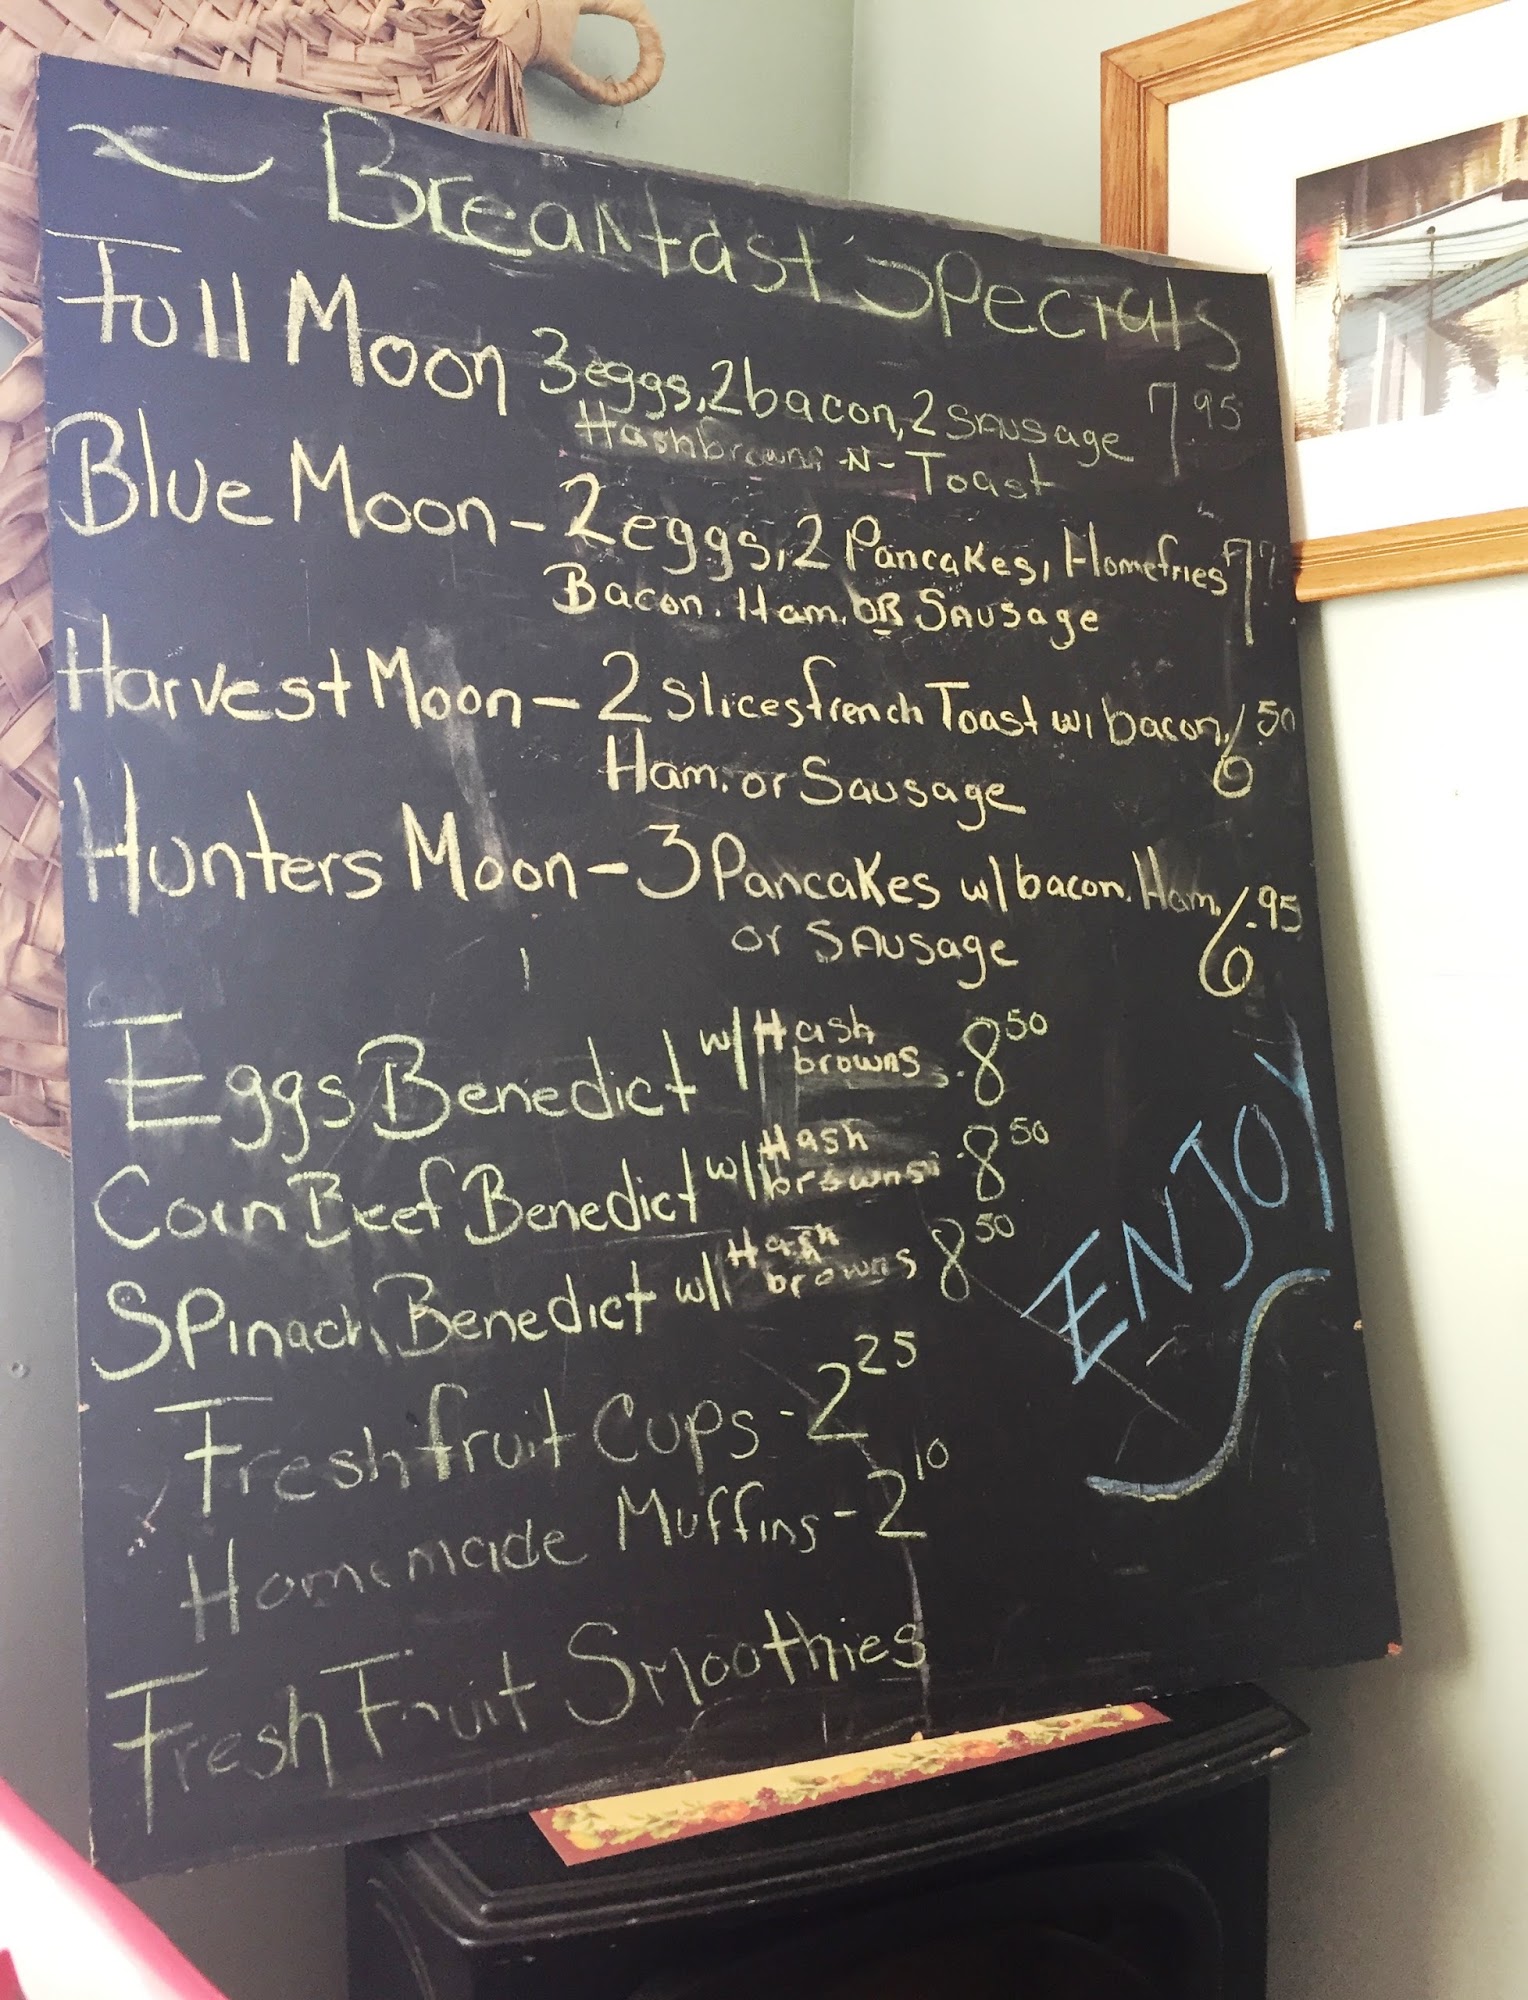 Breakfast Specials
Full Moon 3 eggs, 2 bacon, 2 Sausage 7 95
Hashbrowns -N- Toast
Blue Moon - 2 eggs, 2 Pancakes, Homefries 7
Bacon. Ham. OR Sausage
Harvest Moon - 2 Slices french Toast w/ bacon, 6.50
Ham. or Sausage
Hunters Moon - 3 Pancakes w/ bacon. Ham, 6.95
or Sausage
Eggs Benedict w/ Hash browns .8 50
Corn Beef Benedict w/ Hash browns .8 50
Spinach Benedict w/ Hash browns 8 50
Fresh fruit Cups - 2 25
Homemade Muffins - 2 10
Fresh Fruit Smoothies
ENJOY